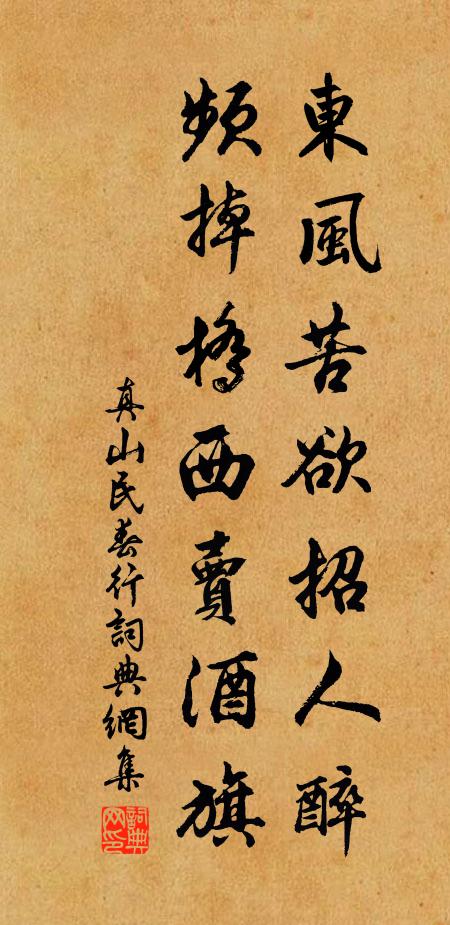 東風苦欲招人醉
頻掉橋西賣酒旗
真山民春行詞典網集
詞典網印